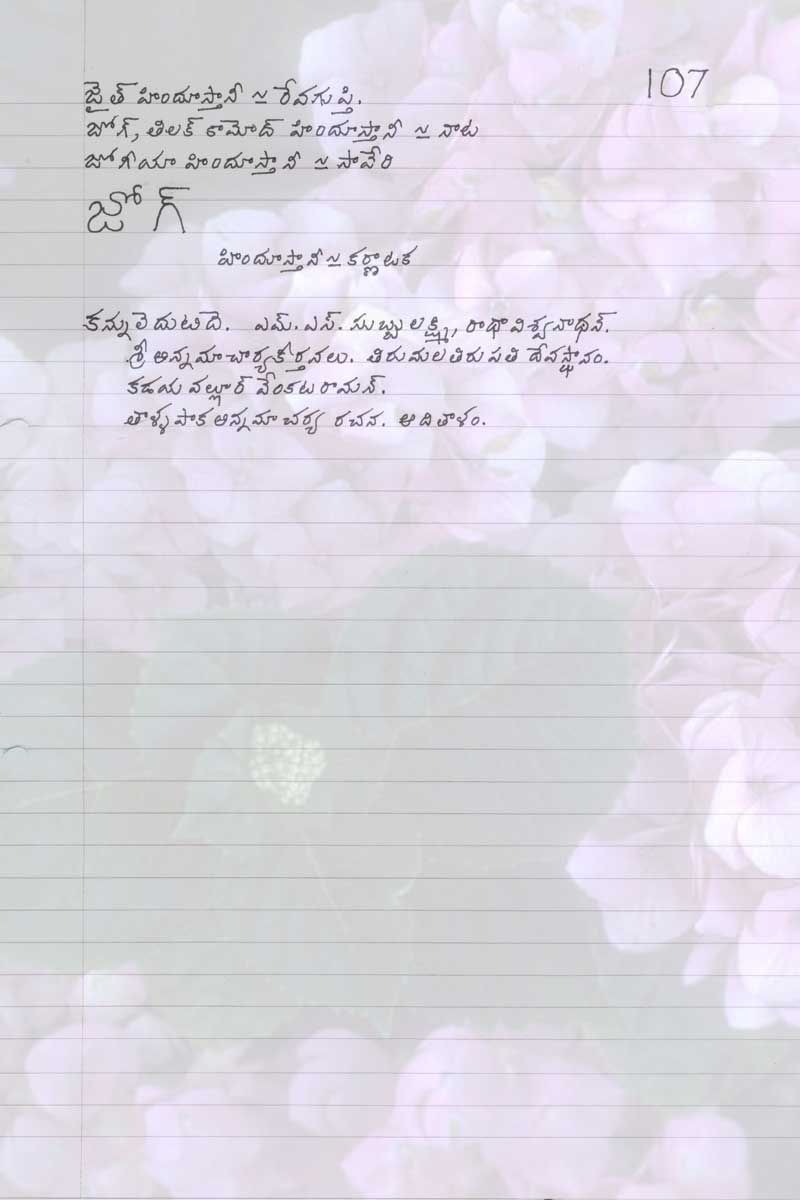 107
జైత్ హిందూస్తానీ ~ రేవగుప్తి.
జోగ్, తిలక్ కామోద్ హిందూస్తానీ ~ నాట
జోగీయా హిందూస్తానీ ~ సావేరి
జోగ్
హిందూస్తానీ ~ కర్ణాటక
కన్నులెదుటిదె. ఎమ్.ఎస్. సుబ్బులక్ష్మి, రాధావిశ్వనాథన్.
శ్రీ అన్నమాచార్యకీర్తనలు. తిరుమలతిరుపతి దేవస్థానం.
కడయనల్లూర్ వేంకటరామన్.
తాళ్ళపాక అన్నమాచర్య రచన. ఆదితాళం.